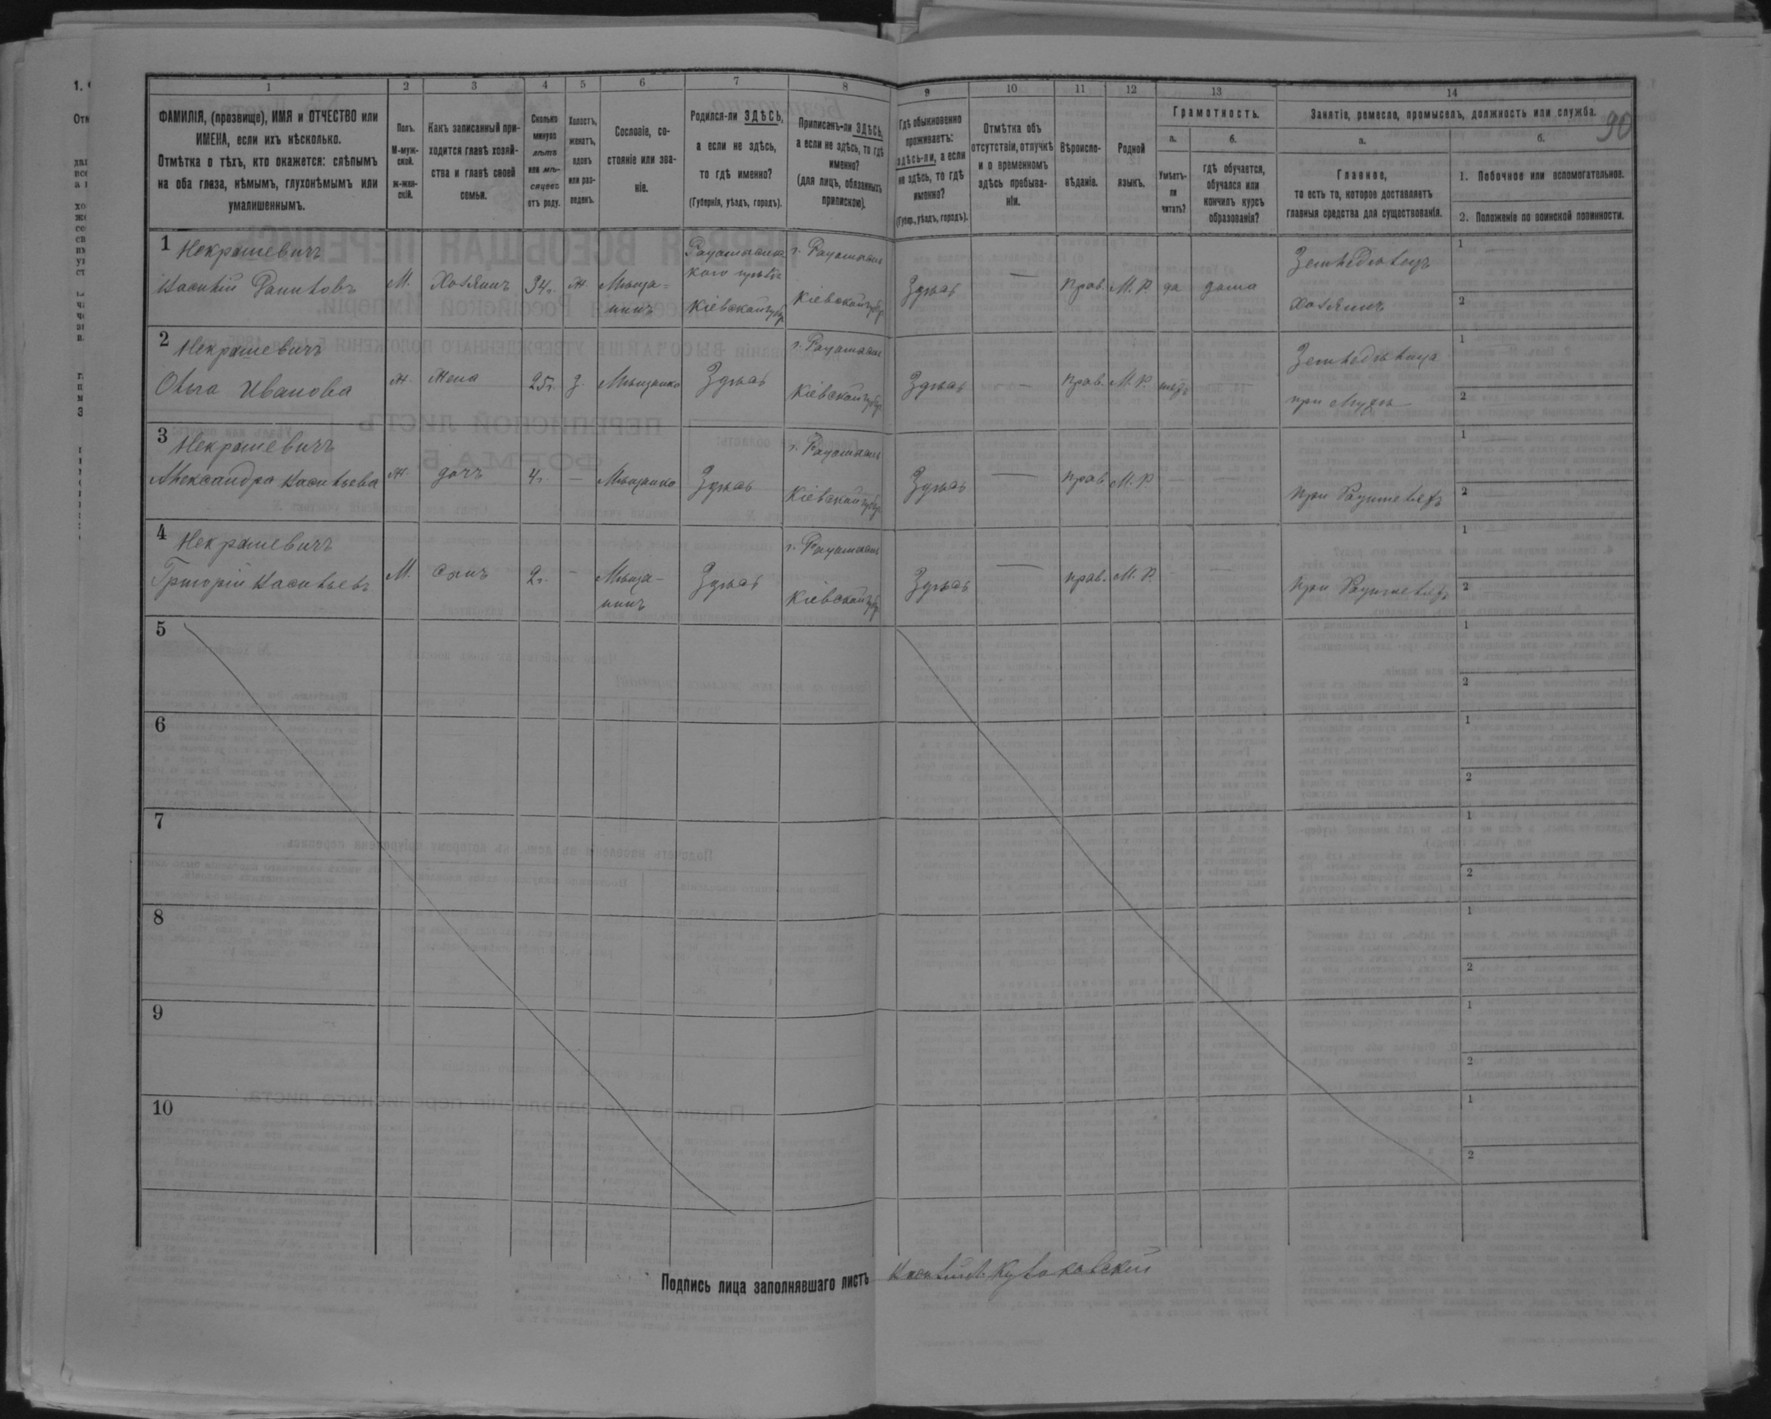 1 2 3 4 5 6 7 8 9 10 11 12 13 14
ФАМИЛІЯ, (прозвище), ИМЯ и ОТЧЕСТВО или
ИМЕНА, если ихъ нѣсколько.
Отмѣтка о тѣхъ, кто окажется: слѣпымъ
на оба глаза, нѣмымъ, глухонѣмымъ или
умалишеннымъ.
Полъ.
М-муж-
ской.
ж-жен-
скій.
Какъ записанный при-
ходится главѣ хозяй-
ства и главѣ своей
семьи.
Сколько
минуло
лѣтъ
или мѣ-
сяцевъ
отъ роду.
Холостъ,
женатъ,
вдовъ
или раз-
веденъ.
Сословіе, со-
стояніе или зва-
ніе.
Родился-ли ЗДѢСЬ,
а если не здѣсь,
то гдѣ именно?
(Губернія, уѣздъ, городъ).
Приписанъ-ли ЗДѢСЬ,
а если не здѣсь, то гдѣ
именно?
(для лицъ, обязанныхъ
припискою).
Гдѣ обыкновенно
проживаетъ:
здѣсь-ли, а если
не здѣсь, то гдѣ
именно?
(Губер., уѣздъ, городъ).
Отмѣтка объ
отсутствіи, отлучкѣ
и о временномъ
здѣсь пребыва-
ніи.
Вѣроиспо-
вѣданіе.
Родной
языкъ.
Грамотность.
а.
Умѣетъ-
ли
читать?
б.
Гдѣ обучается,
обучался или
кончилъ курсъ
образованія?
Занятіе, ремесло, промыселъ, должность или служба.
90
а.
Главное,
то есть то, которое доставляетъ
главныя средства для существованія.
б.
1. Побочное или вспомогательное.
2. Положеніе по воинской повинности.
1 Некрашевичъ
Василій Даниловъ
М. Хозяинъ 34г. ж. Мѣща-
нинъ
Кіевской губ.
Кіевской губ.
Здѣсь — Прав. М. Р. да дома
Земледѣлецъ
хозяинъ
1
2
2 Некрашевичъ
Ольга Иванова
ж. жена 25г. з. Мѣщанка Здѣсь
Кіевской губ.
Здѣсь — прав. М. Р.
при мужѣ
1
2
3 Некрашевичъ
Александра Васильева
ж. дочь 4г. — Мѣщанка Здѣсь
Кіевской губ.
Здѣсь — прав. М. Р. — —
при родителяхъ
1
2
4 Некрашевичъ
Григорій Васильевъ
М. сынъ 2г. — Мѣща-
нинъ
Здѣсь
Кіевской губ.
Здѣсь — прав. М. Р. — —
при родителяхъ
1
2
5
1
2
6
1
2
7
1
2
8
1
2
9
1
2
10
1
2
Подпись лица заполнявшаго листъ